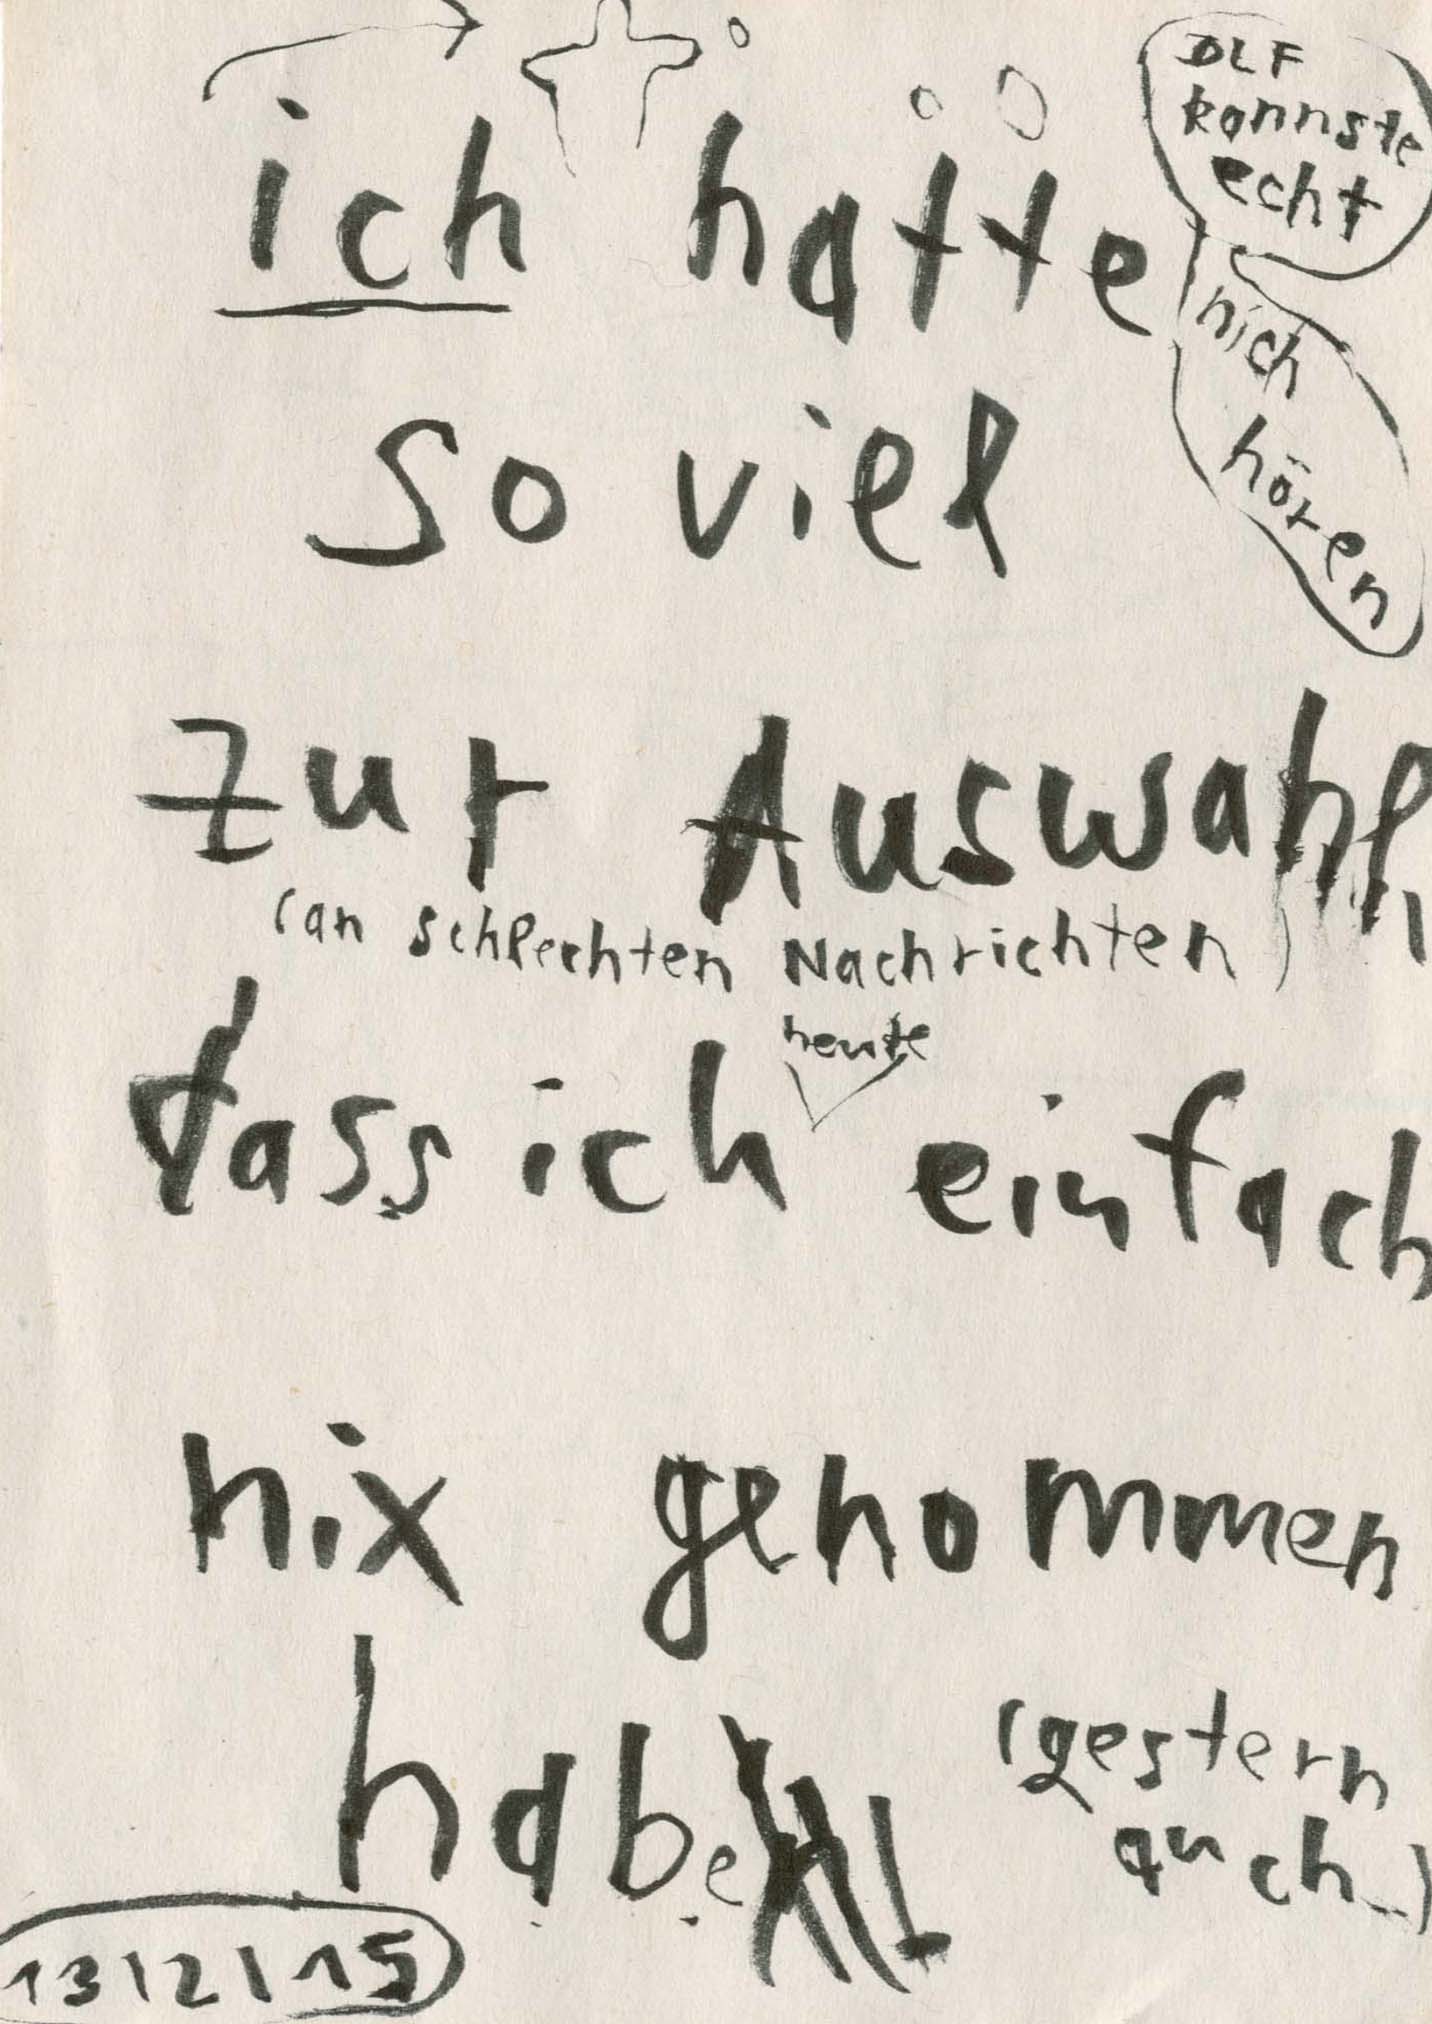 ich hatte
so viel
zur Auswahl,
(an schlechten Nachrichten)
heute
dass ich einfach
nix genommen
habe
(gestern
auch)
13|2|15
DLF
kannste
echt
nich
hören